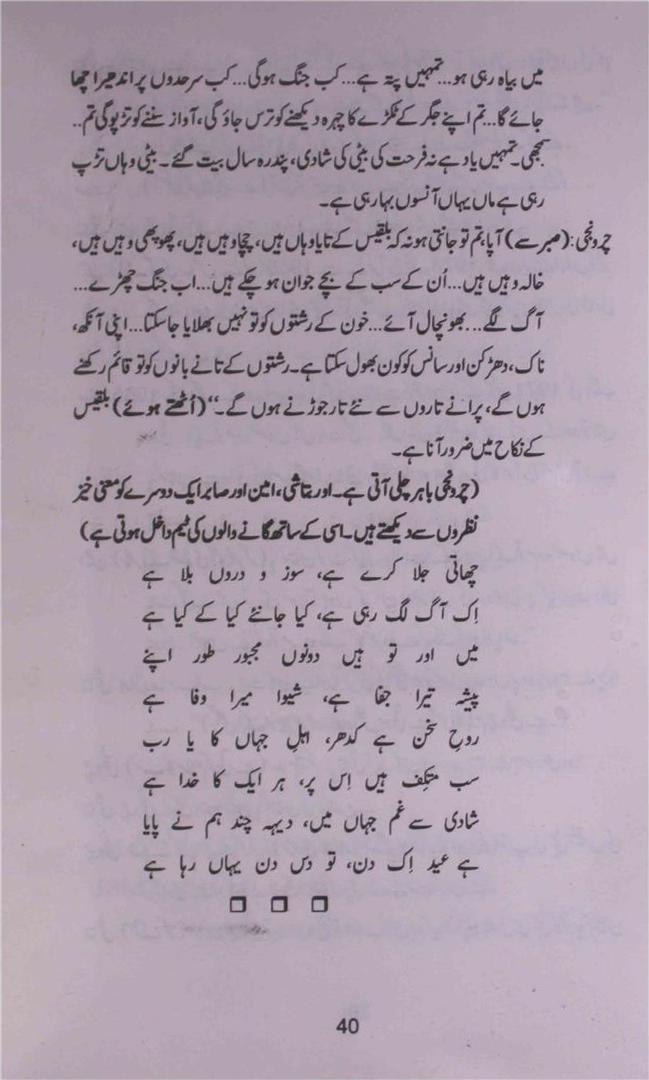 میں بیاہ رہی ہو...تمہیں پتہ ہے...کب جنگ ہوگی...کب سرحدوں پر اندھیرا چھا
جائے گا...تم اپنے جگر کے ٹکڑے کا چہرہ دیکھنے کو ترس جاؤ گی، آواز سننے کو تڑپو گی تم..
سمجھی۔ تمہیں یاد ہے نہ فرحت کی بیٹی کی شادی، پندرہ سال بیت گئے۔ بیٹی وہاں تڑپ
رہی ہے ماں یہاں آنسوں بہا رہی ہے۔
چرونجی: (صبر سے) آپا، تم تو جانتی ہو نہ کہ بلقیس کے تایا وہاں ہیں، چچا وہیں ہیں، پھوپھی وہیں ہیں،
خالہ وہیں ہیں...اُن کے سب کے بچے جوان ہو چکے ہیں...اب جنگ چھڑے...
آگ لگے...بھونچال آئے...خون کے رشتوں کو تو نہیں بھلایا جا سکتا...اپنی آنکھ،
ناک، دھڑکن اور سانس کو کون بھول سکتا ہے۔ رشتوں کے تانے بانوں کو تو قائم رکھنے
ہوں گے، پرانے تاروں سے نئے تار جوڑنے ہوں گے۔“ (اُٹھتے ہوئے) بلقیس
کے نکاح میں ضرور آنا ہے۔
(چرونجی باہر چلی آتی ہے۔ اور بتاشی، امین اور صابر ایک دوسرے کو معنی خیز
نظروں سے دیکھتے ہیں۔ اسی کے ساتھ گانے والوں کی ٹیم داخل ہوتی ہے)
چھاتی جلا کرے ہے، سوز و دروں بلا ہے
اِک آگ لگ رہی ہے، کیا جانئے کیا کے کیا ہے
میں اور تو ہیں دونوں مجبور طور اپنے
پیشہ تیرا جفا ہے، شیوا میرا وفا ہے
روحِ سخن ہے کدھر، اہلِ جہاں کا یا رب
سب متکِف ہیں اِس پر، ہر ایک کا خدا ہے
شادی سے غم جہاں میں، دیہہ چند ہم نے پایا
ہے عید اِک دن، تو دس دن یہاں رہا ہے
❒ ❒ ❒
40